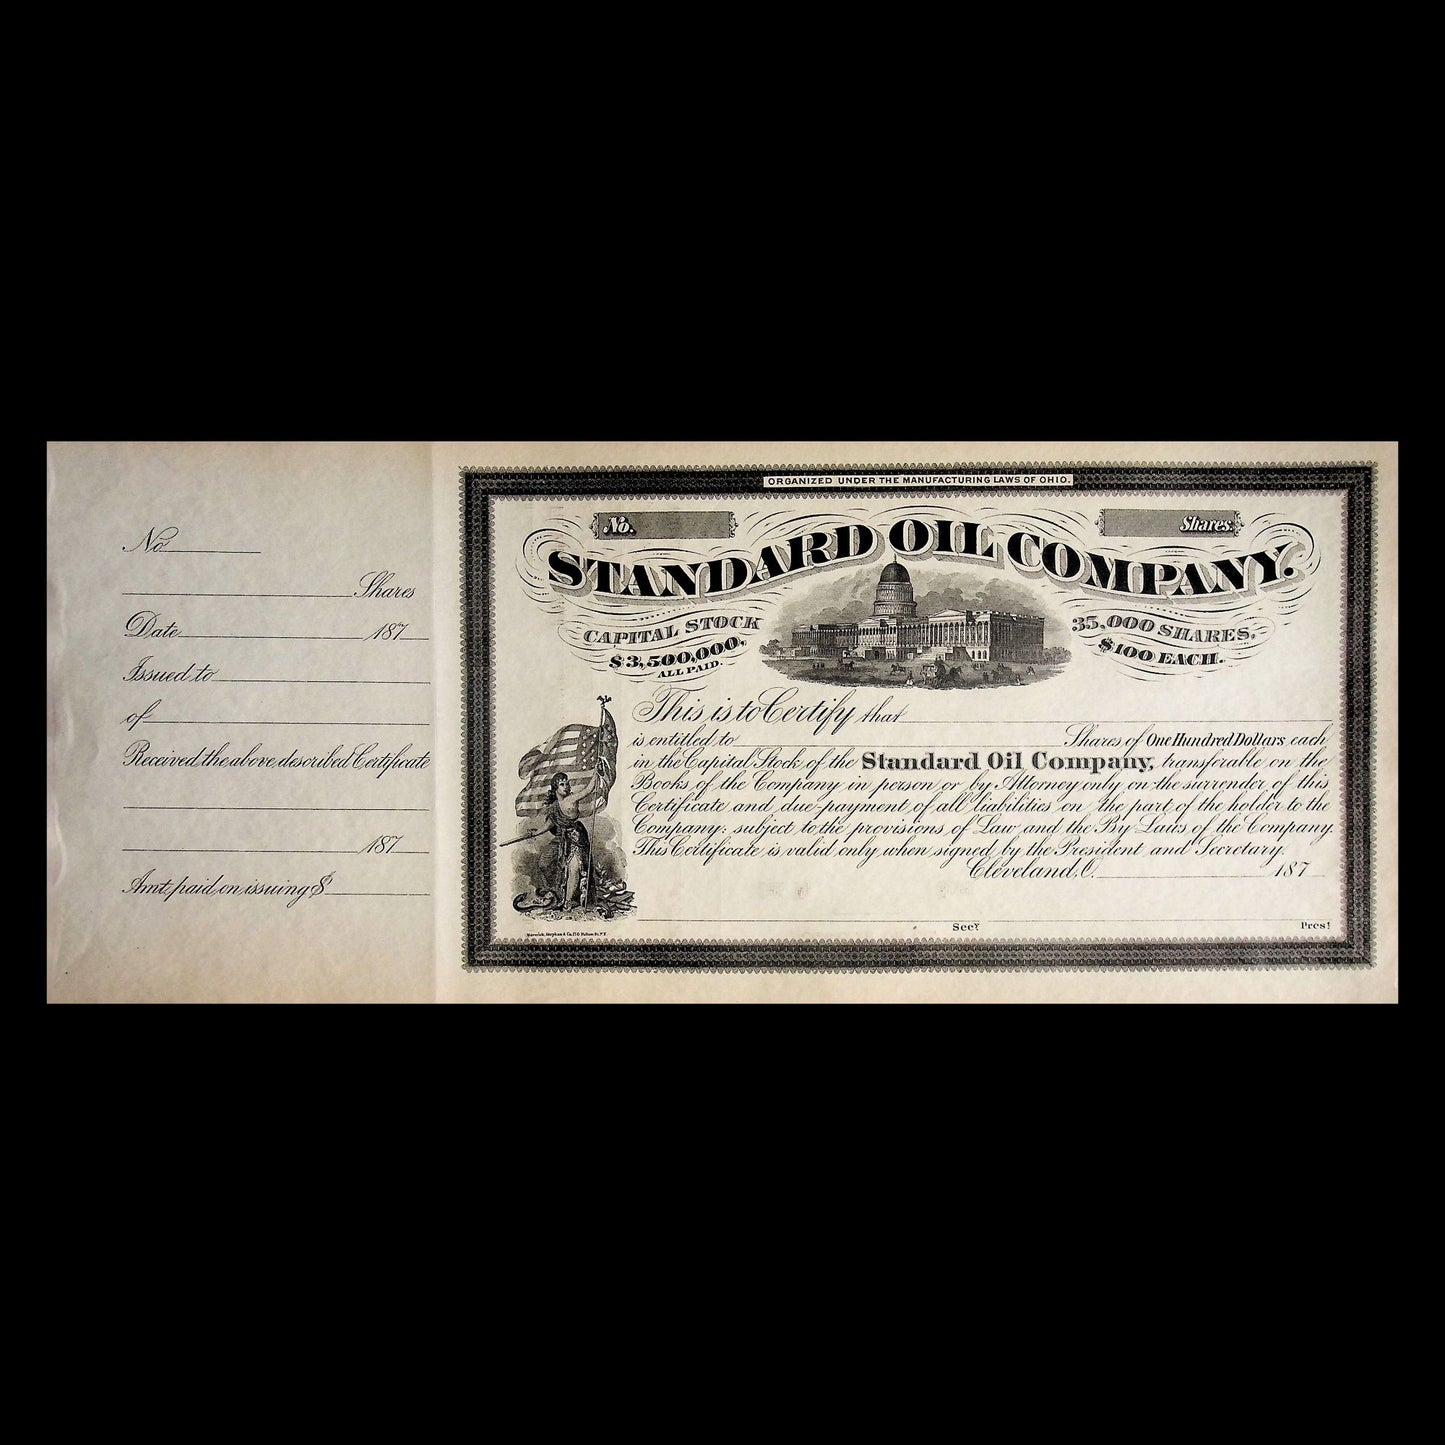 No
Shares
Date 187
Issued to
of
Received the above described Certificate
187
Amt. paid on issuing $
ORGANIZED UNDER THE MANUFACTURING LAWS OF OHIO.
No.
Shares.
STANDARD OIL COMPANY.
CAPITAL STOCK
$3,500,000.
ALL PAID.
35,000 SHARES,
$100 EACH.
This is to Certify that
is entitled to Shares of One Hundred Dollars each
in the Capital Stock of the Standard Oil Company, transferable on the
Books of the Company in person or by Attorney only on the surrender of this
Certificate and due payment of all liabilities on the part of the holder to the
Company: subject to the provisions of Law and the By Laws of the Company.
This Certificate is valid only when signed by the President and Secretary.
Cleveland, O. 187
Secy.
Prest.